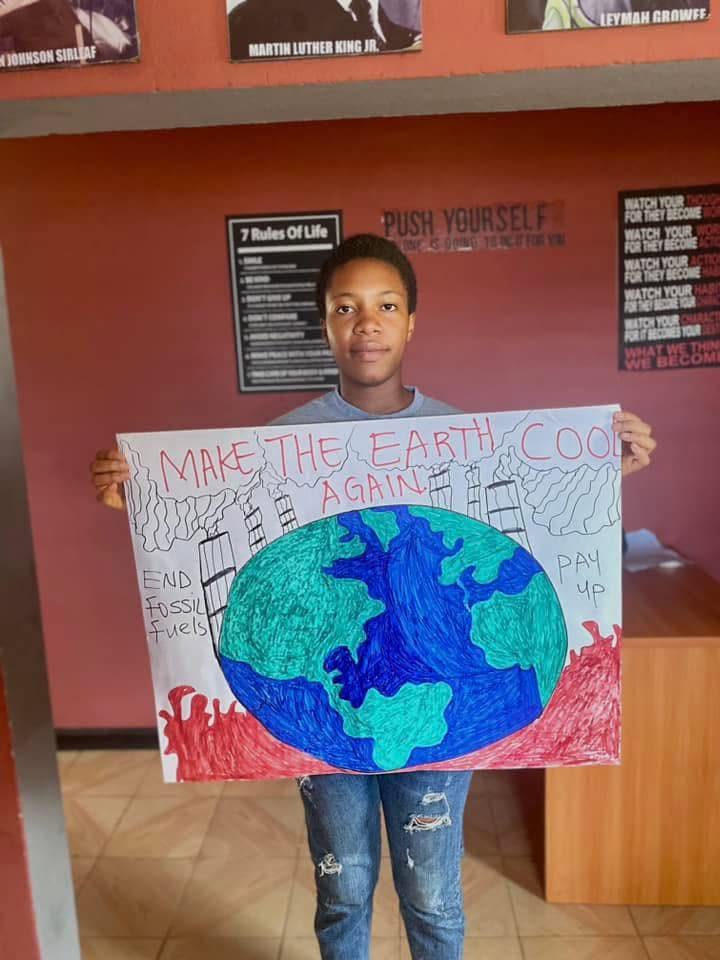 N JOHNSON SIRLEAF
MARTIN LUTHER KING JR.
LEYMAH GBOWEE
7 Rules Of Life
1. SMILE
PUSH YOURSELF
NE IS GOING TO DO IT FOR YOU
WATCH YOUR THOU
FOR THEY BECOME WO
WATCH YOUR WOR
FOR THEY BECOME ACTIO
WATCH YOUR ACTIO
FOR THEY BECOME HAB
WATCH YOUR HABI
FOR THEY BECOME YOUR CHAR
WATCH YOUR CHARACT
FOR IT BECOMES YOUR DES
WHAT WE THIN
WE BECOM
MAKE THE EARTH COOL
AGAIN
END
Fossil
fuels
PAY
UP